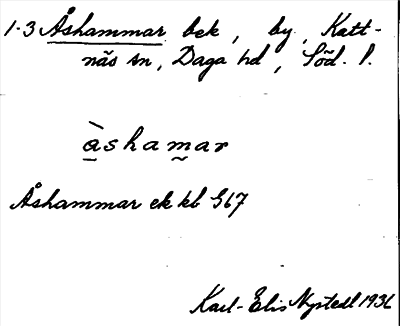 1-3 Åshammar bek, by, Katt-
näs sn, Daga hd, Söd. l.
àshamar
Åshammar ek kb S67
Karl-Elis Nystedt 1936